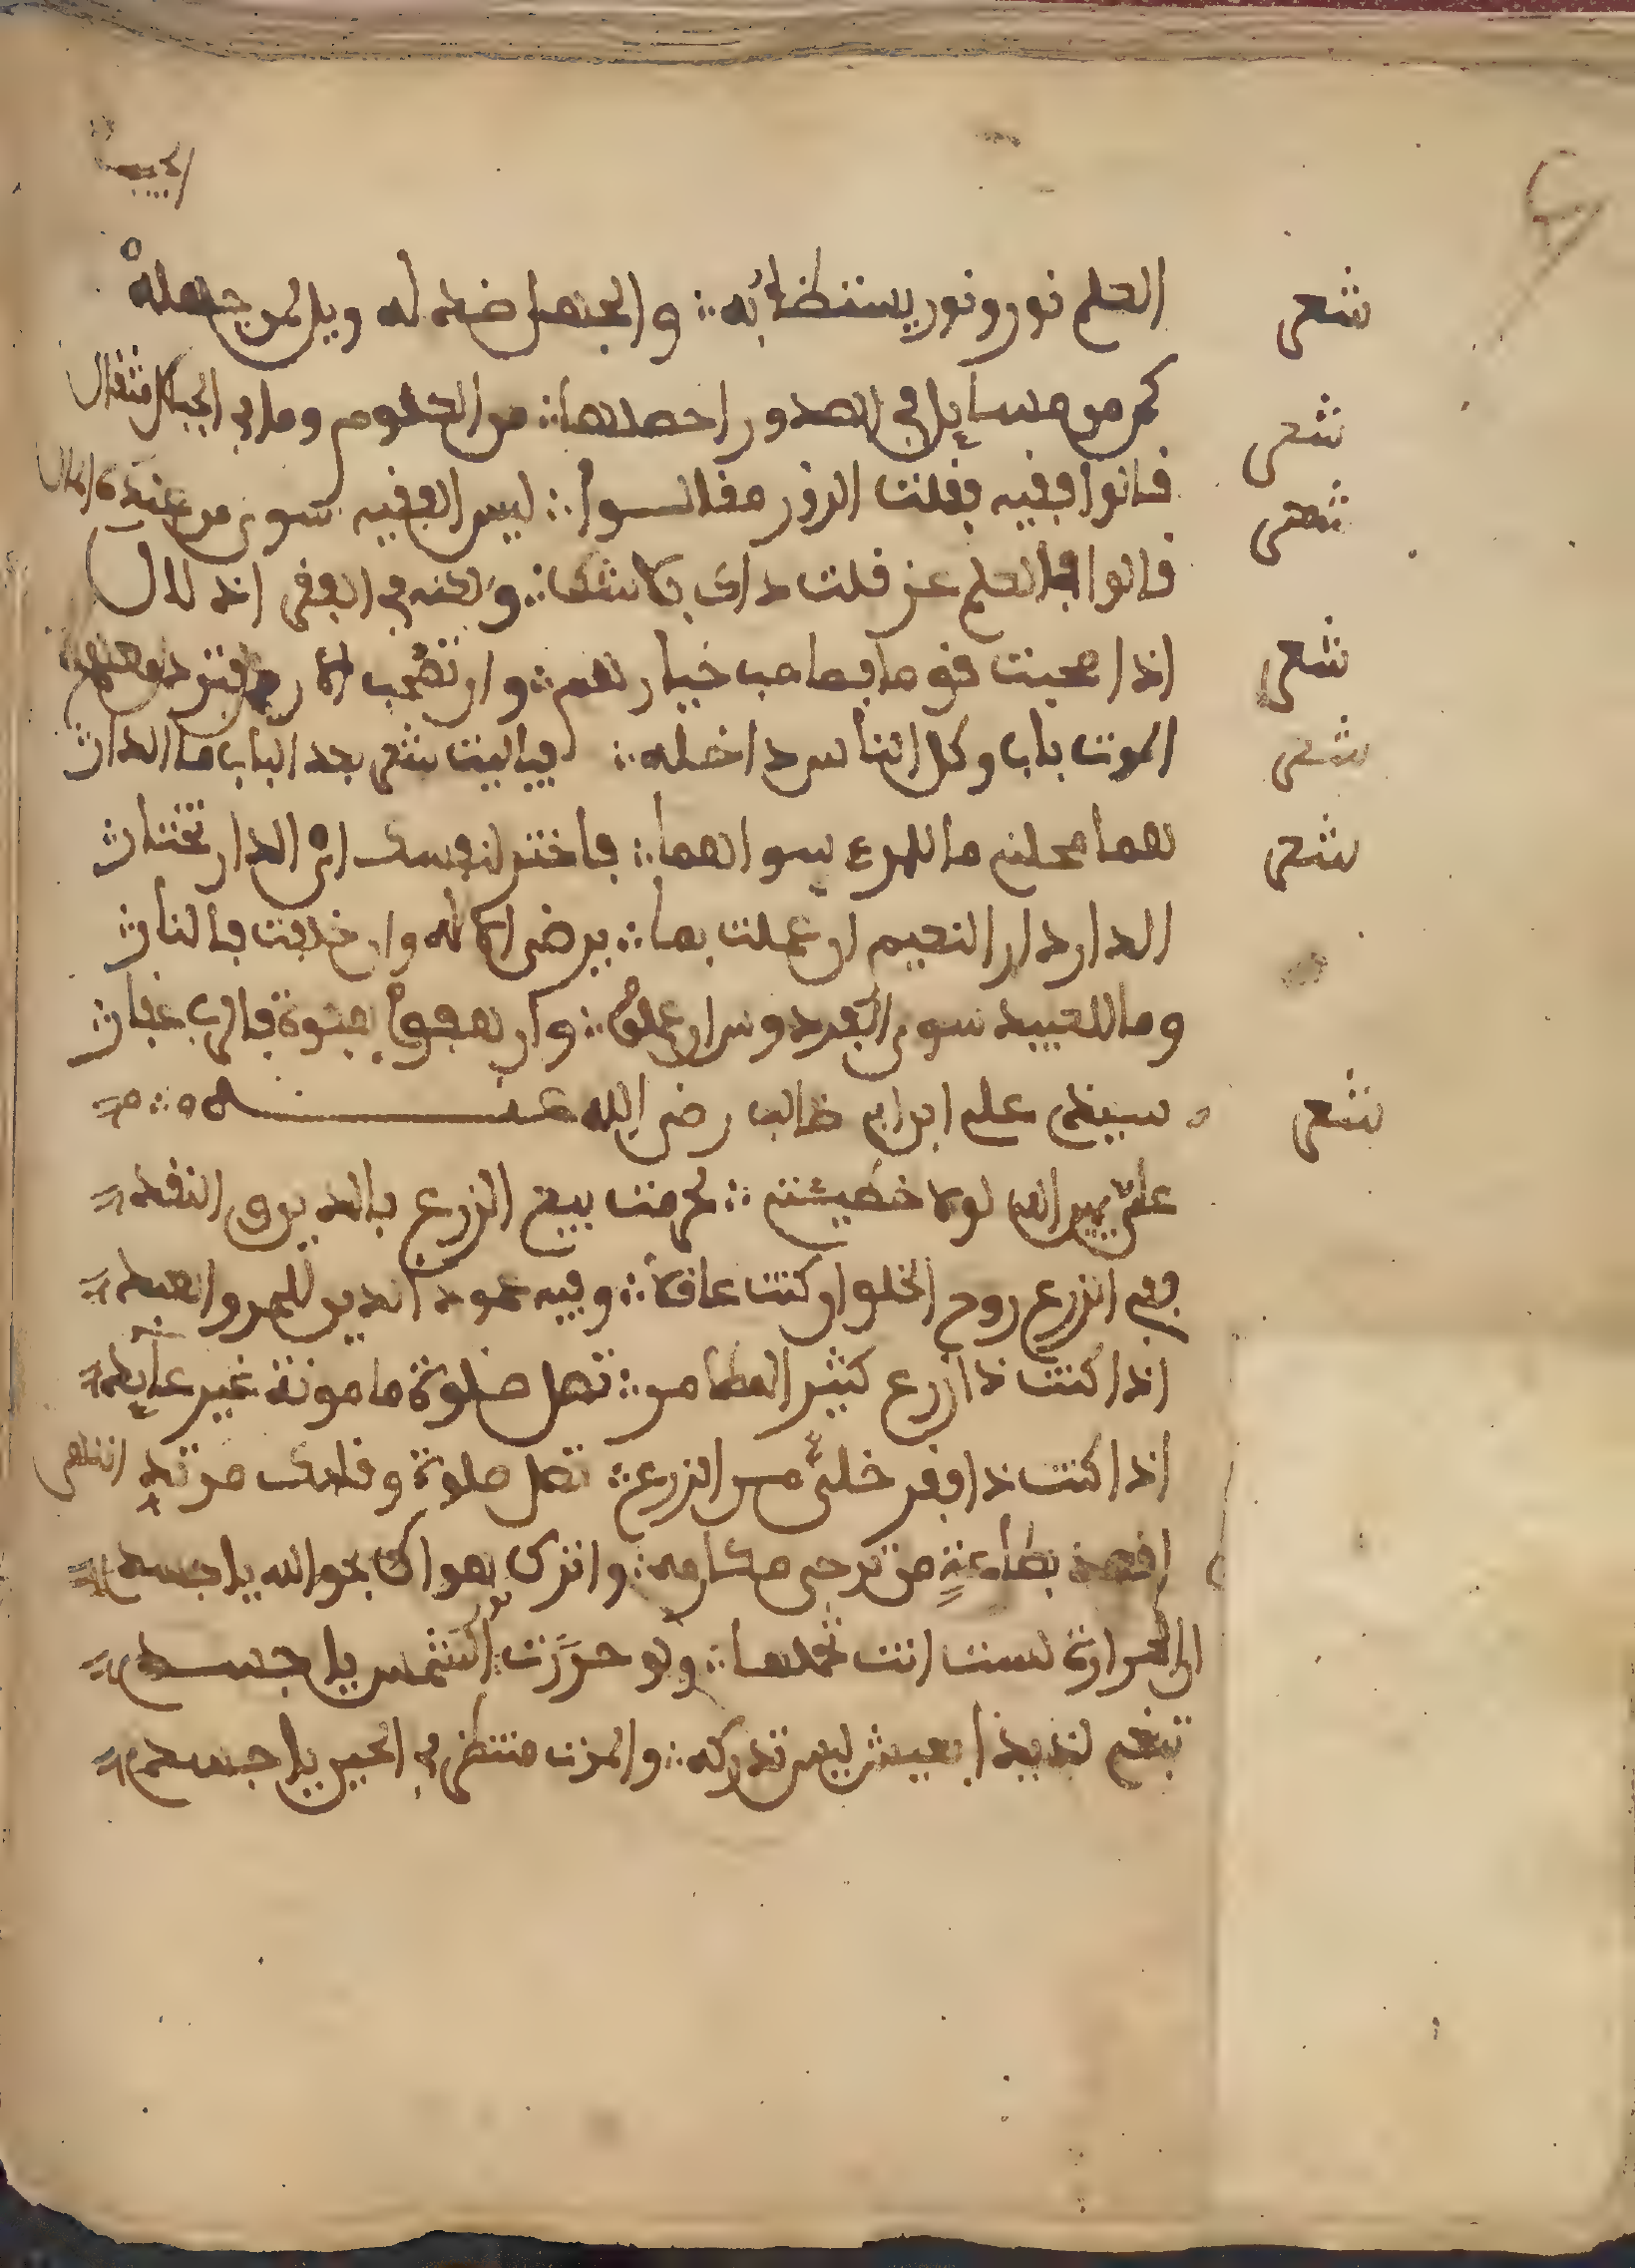 شعر العلم نور ونور يستظائبه ؞ والجهل ضد له ويل لمن جهله
شعر كم من مسايل في الصدور احصلها ؞ من العلوم وما في الجيب مثقال
شعر قالوا فقيه فقلت الرزق مقالسوا ؞ ليس الفقيه سوى من عنده المال
قالوا فالعلم عز قلت ذاك بلا شك ؞ ولكنه في الفقر اذلال
شعر اذا صحبت قوما فصاحب خيارهم ؞ وان تصحب
شعر الموت باب وكل الناس داخله ؞ فياليت شعر بعد الباب ما الدار
شعر لهما محلن ما للمرء سواهما ؞ فاختر لنفسك اي الدار تختار
الدار دار النعيم ان عملت بما ؞ يرضى الاله وان خلفت فالنار
وما للعبيد سوى الفردوس ان عملوا ؞ وان هفوا هفوة فالرب غفار
شعر سيدي علي ابن ابي طالب رضي الله عنه
علي يمين الله لولا خطيئتي ؞ لحرمت بيع الزرع بالدين والنقد
ففي الزرع روح الخلق ان كنت عاقلا ؞ وفيه عمود الدين للحر والعبد
اذا كنت ذا زرع كثير المطامر ؞ تصل صلوة مامونة غير عابد
اذا كنت ذا فقر خلي من الزرع ؞ تصل صلوة وقلبك مرتد انتهى
بطاعة من ترجى مكارمه ؞ واترك هواك بحق الله يا جسدي
الى الحرارة لست انت تحملها ؞ ولو حررت الشمس يا جسدي
تبغي لذيذ العيش ليس تدركه ؞ والموت منتظر في الحين يا جسدي